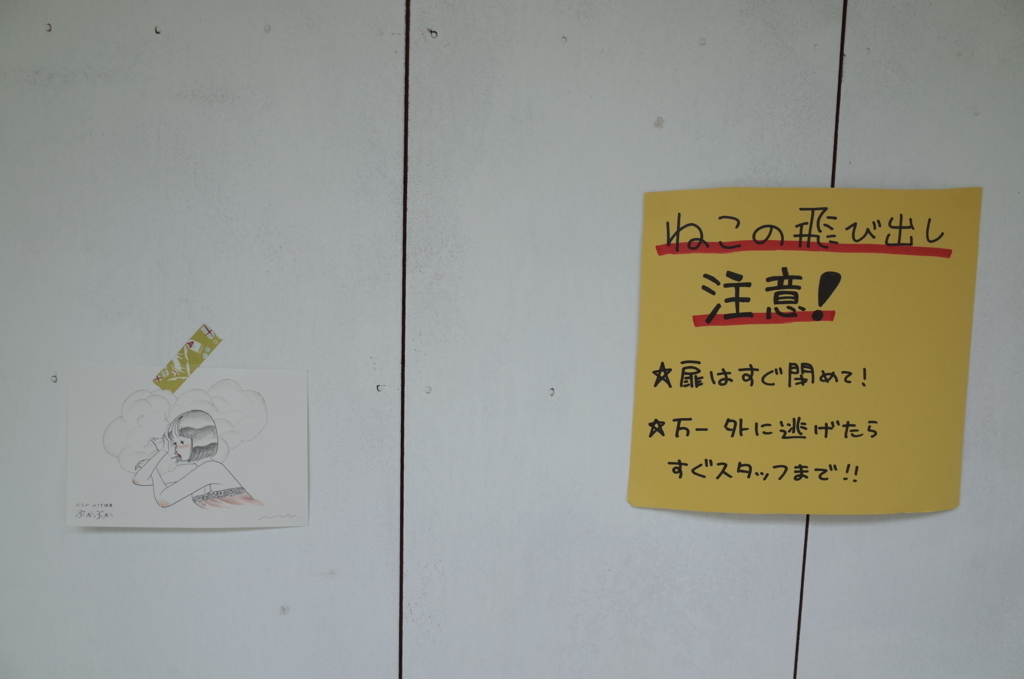 ねこの飛び出し
注意!
☆扉はすぐ閉めて!
☆万一 外に逃げたら
すぐスタッフまで!!
ぷかぷか